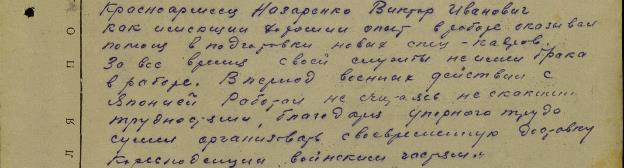 Красноармеец Назаренко Виктор Иванович
как имеющий хороший опыт в работе оказывал
помощ в подготовки новых спец-кадров.
За все время своей службы не имел брака
в работе. В период военных действий с
Японией работал не считаясь не скакими
трудностями, благодаря упорного труда
сумел организовать своевременную доставку
коресподенции войнским частям.
Л Я П О